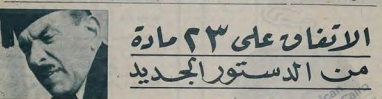 الاتفاق على ٢٣ مادة
من الدستور الجديد